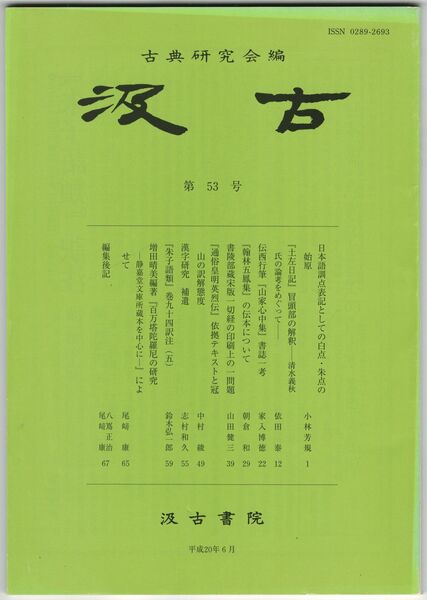 ISSN 0289-2693
古典研究会編
汲古
第 53 号
日本語訓点表記としての白点・朱点の
始原 小林芳規 1
『土左日記』冒頭部の解釈――清水義秋
氏の論考をめぐって―― 依田 泰 12
伝西行筆『山家心中集』書誌一考 家入博徳 22
『翰林五鳳集』の伝本について 朝倉 和 29
書陵部蔵宋版一切経の印刷上の一問題 山田健三 39
『通俗皇明英烈伝』依拠テキストと冠
山の訳解態度 中村 綾 49
漢字研究 補遺 志村和久 55
『朱子語類』巻九十四訳注（五） 鈴木弘一郎 59
増田晴美編著『百万塔陀羅尼の研究
―静嘉堂文庫所蔵本を中心に―』によ
せて 尾﨑 康 65
編集後記 八嶌正治
尾﨑 康 67
汲古書院
平成20年6月